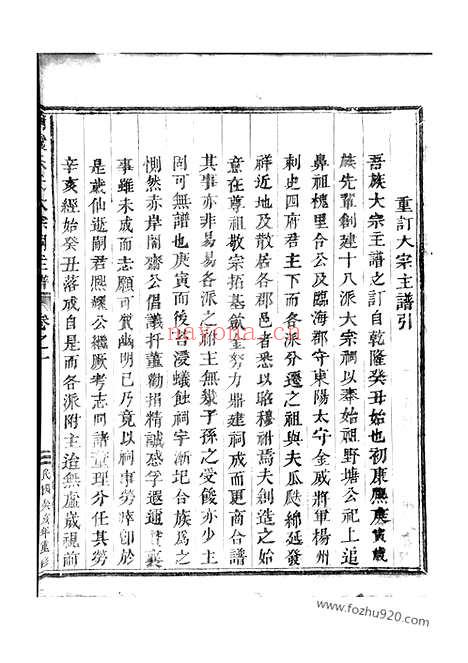 重訂大宗主譜引
吾族大宗主譜之訂自乾隆癸丑始也初康熙庚寅歲
族先輩創建十八派大宗祠以奉始祖野塘公祀上追
鼻祖槐里令公及臨海郡守東陽太守金威將軍楊州
刺史四府君主下而各派分遷之祖與夫瓜瓞綿延發
祥近地及僑居各郡邑者悉以昭穆祔焉夫創造之始
意在尊祖敬宗拓基歛金努力鼎建祠成而更商合譜
其事亦非易易各派之祔主無幾子孫之受餕亦少主
固可也庚寅而後日浸蟻蝕祠宇漸圮合族為之
惻然赤岸閣齋公倡議扦董勸捐精誠感孚遐邇
事雖未成而志願可質幽明已乃竟以祠事勞瘁卬於
是歲仙逝嗣君熙耀公繼厥考志同諸董理分任其勞
辛亥經始癸丑落成自是而各派附主迨無虛歲視前
大宗祠主譜
卷之一
民國癸亥年重修
nayona.cn
www.fozhu920.com